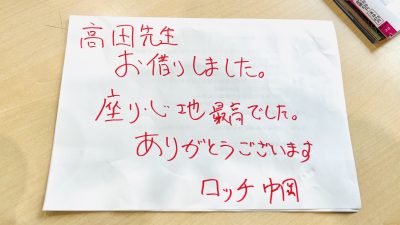 高田先生
お借りしました。
座り心地最高でした。
ありがとうございます
ロッチ中岡